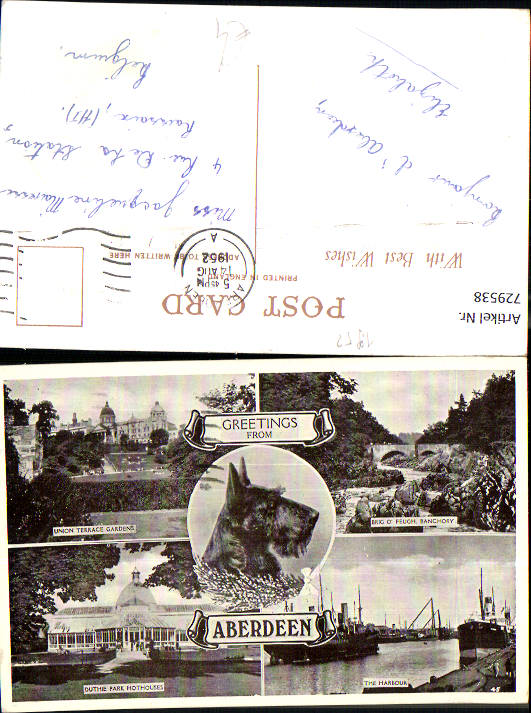 Artikel Nr.
729538
POST CARD
PRINTED IN ENGLAND
With Best Wishes
ADDRESS TO BE WRITTEN HERE
ABERDEEN
5 45PM
14 AUG
1952
A
Bonjour d'Aberdeen,
Elizabeth
Miss Jacqueline
4 Rue De La Station,
(HT).
Belgium.
1952
GREETINGS
FROM
ABERDEEN
UNION TERRACE GARDENS
BRIG O' FEUGH, BANCHORY
DUTHIE PARK HOTHOUSES
THE HARBOUR
45